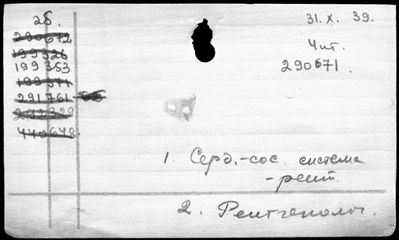 2б.
290672
199326
199353
199371
291761
440648
31. X. 39.
Чит.
290671.
1. Серд.-сос. система
-рент.
2. Рентгенолог.